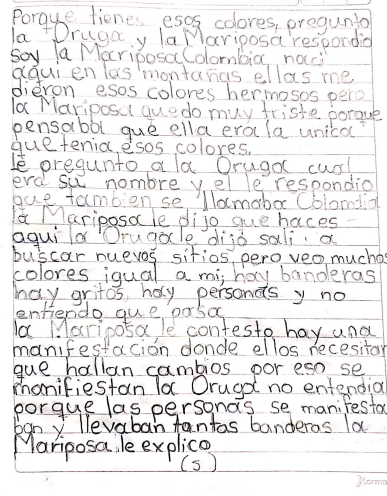 Porque tienes esos colores, pregunto
la Oruga y la Mariposa respondio
soy la Mariposa Colombia naci
aqui en las montañas ellas me
dieron esos colores hermosos pero
la Mariposa quedo muy triste porque
pensaba que ella era la unica
que tenia esos colores.
le pregunto a la Oruga cual
era su nombre y el le respondio
que tambien se llamaba Colombia
la Mariposa le dijo que haces
aqui la Oruga le dijo sali a
buscar nuevos sitios pero veo muchos
colores igual a mi, hay banderas
hay gritos, hay personas y no
entiendo que pasa
la Mariposa le contesto hay una
manifestación donde ellos necesitan
que hallan cambios por eso se
manifiestan la Oruga no entendia
porque las personas se manifesta
ban y llevaban tantas banderas la
Mariposa, le explico
(5)
Norma